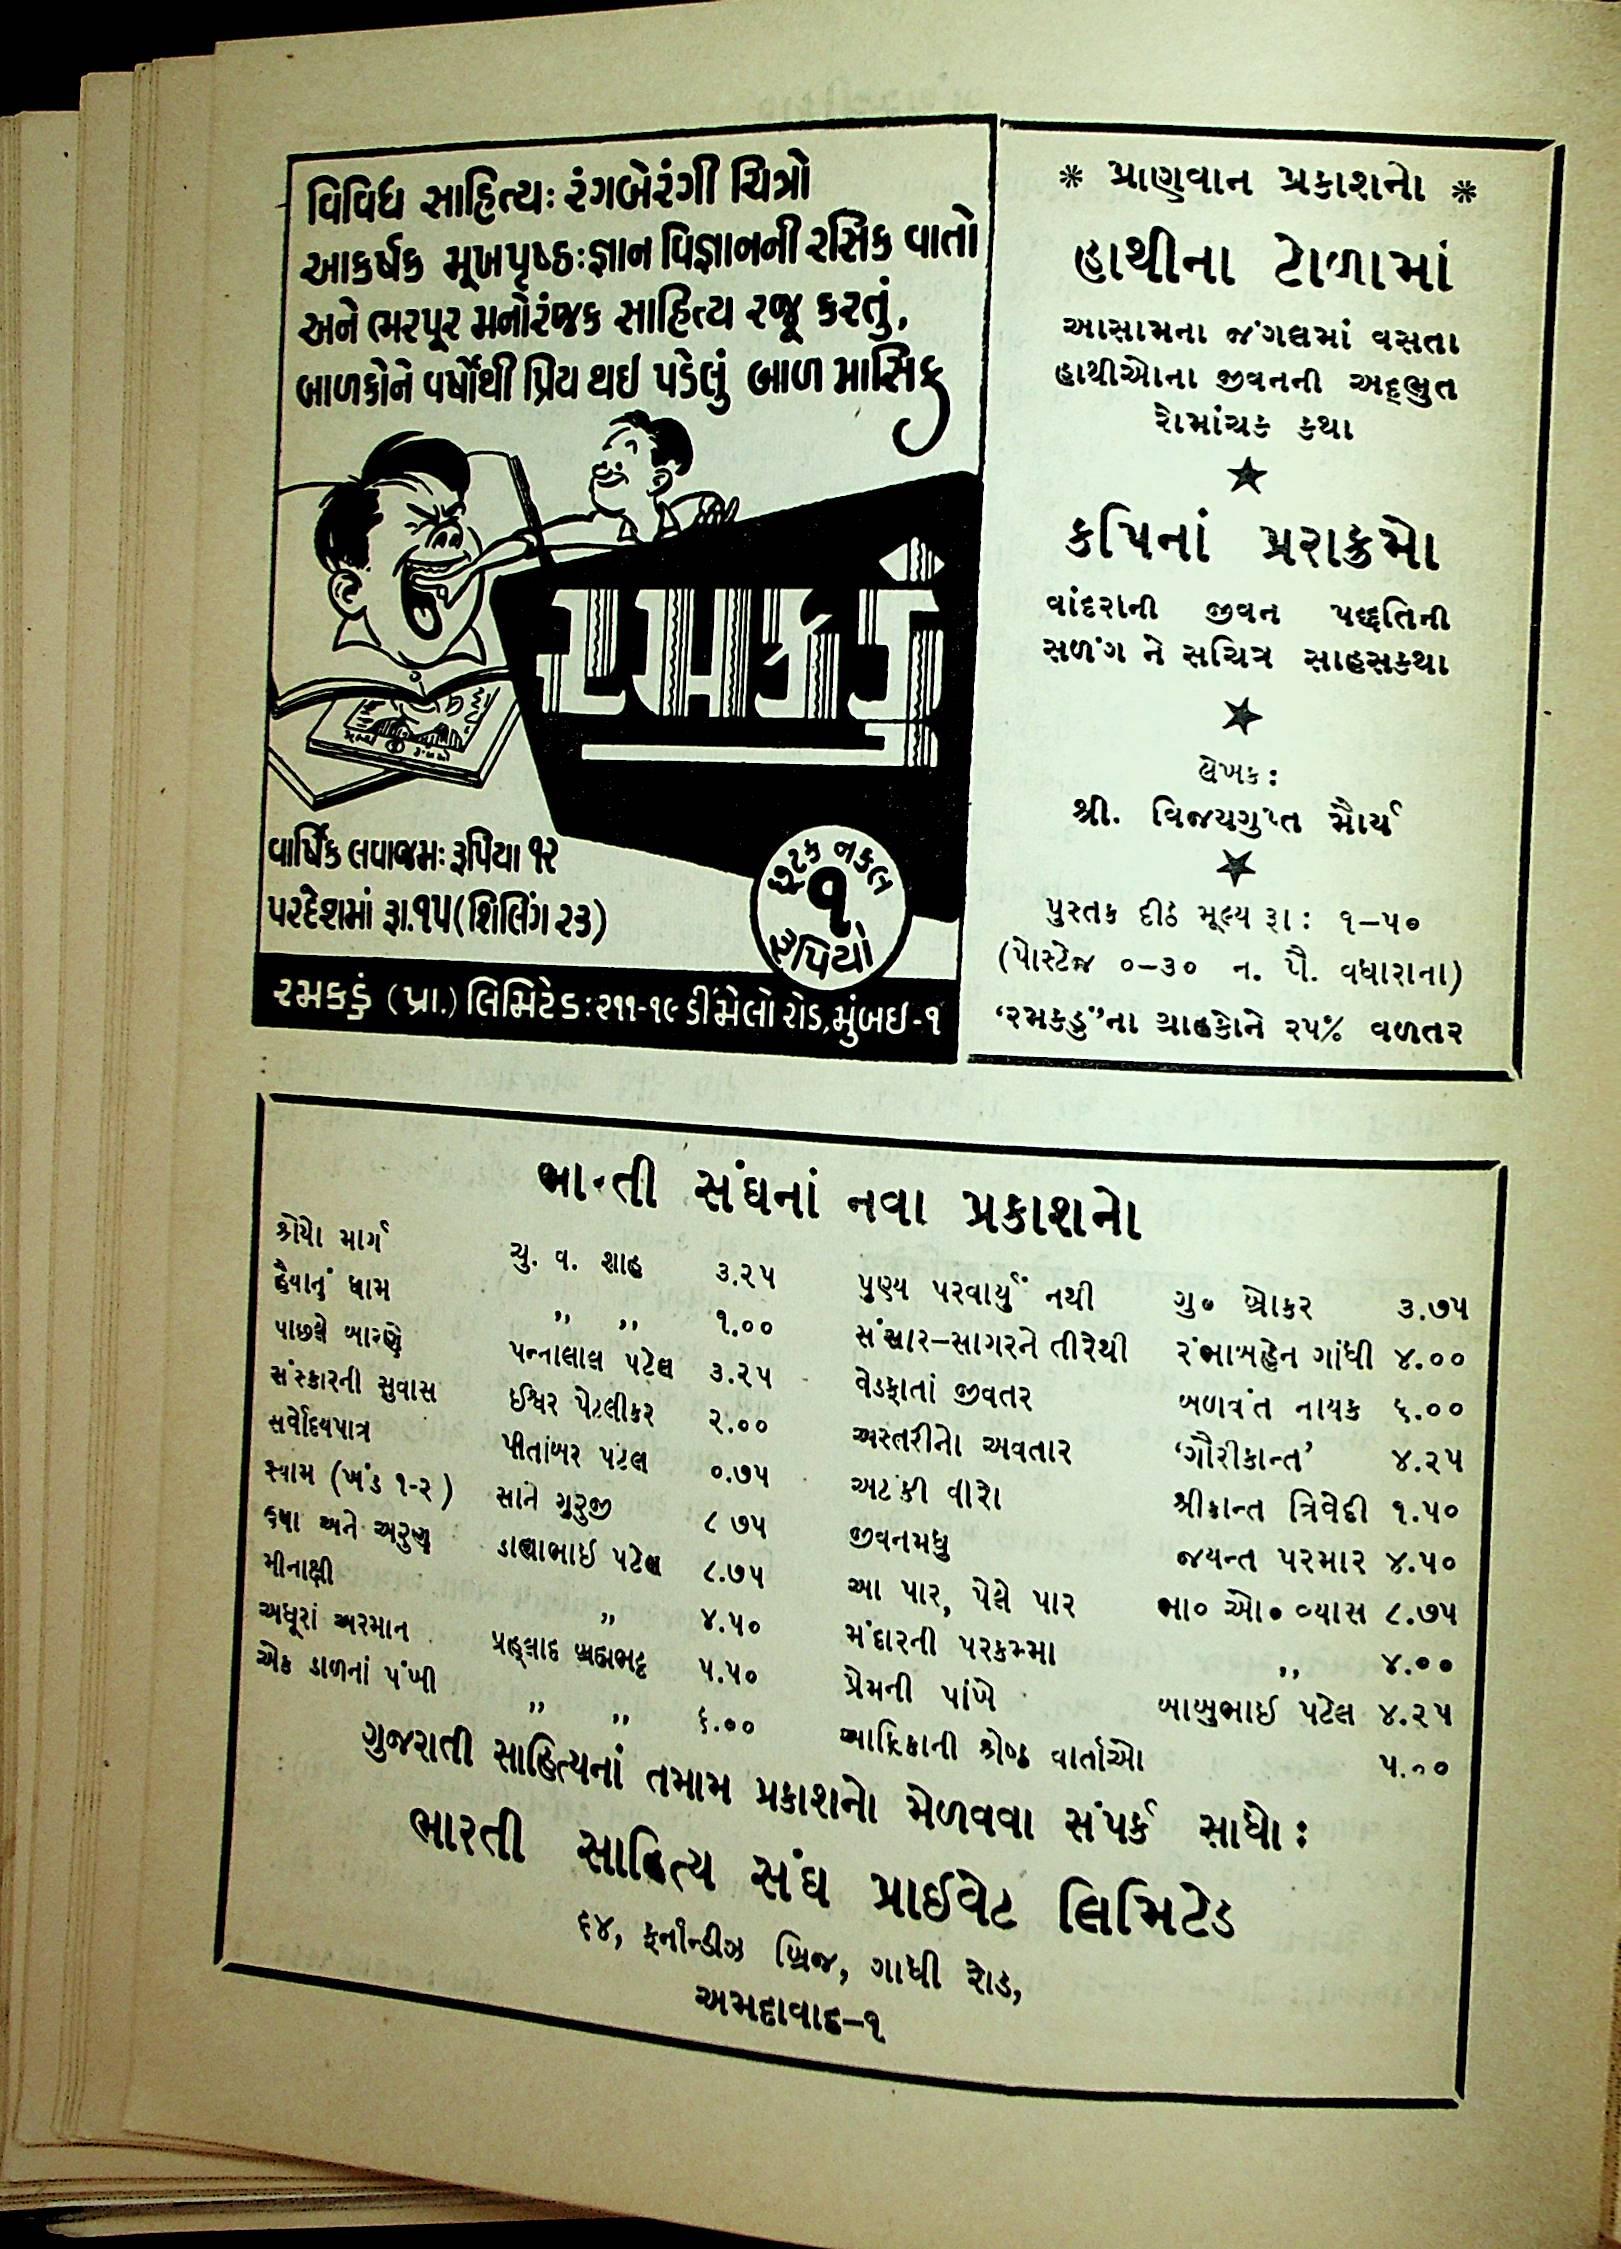 વિવિધ સાહિત્ય: રંગબેરંગી ચિત્રો
આકર્ષક મૂખપૃષ્ઠ: જ્ઞાન વિજ્ઞાનની રસિક વાતો
અને ભરપૂર મનોરંજક સાહિત્ય રજૂ કરતું,
બાળકોને વર્ષોથી પ્રિય થઇ પડેલું બાળ માસિક
રમકડું
વાર્ષિક લવાજમ: રૂપિયા ૧૨
પરદેશમાં રૂા.૧૫ (શિલિંગ ૨૩)
છૂટક નકલ
૧
રૂપિયો
રમકડું (પ્રા.) લિમિટેડ: ૨૧૧-૧૯ ડીમેલો રોડ, મુંબઇ-૧
* પ્રાણવાન પ્રકાશનો *
હાથીના ટોળામાં
આસામના જંગલમાં વસતા
હાથીઓના જીવનની અદ્ભુત
રોમાંચક કથા
કપિનાં પ્રરાક્રમો
વાંદરાની જીવન પદ્ધતિની
સળંગ ને સચિત્ર સાહસકથા
લેખક:
શ્રી. વિજયગુપ્ત મૌર્ય
પુસ્તક દીઠ મૂલ્ય રૂા: ૧-૫૦
(પોસ્ટેજ ૦-૩૦ ન. પૈ. વધારાના)
‘રમકડુ"ના ગ્રાહકોને ૨૫% વળતર
ભારતી સંઘનાં નવા પ્રકાશનો
ક્રોયો માર્ગ ચુ. વ. શાહ ૩.૨૫
હૈયાનું ધામ ,, ,, ૧.૦૦
પાછલે બારણે પન્નાલાલ પટેલ ૩.૨૫
સંસ્કારની સુવાસ ઈશ્વર પેટલીકર ૨.૦૦
સર્વોદયપાત્ર પીતાંબર પટેલ ૦.૭૫
શ્યામ (ખંડ ૧-૨) સાને ગુરુજી ૮ ૭૫
ઉષા અને અરુણ ડાહ્યાભાઈ પટેલ ૮.૭૫
મીનાક્ષી ,, ૪.૫૦
અધૂરાં અરમાન પ્રહ્લાદ બ્રહ્મભટ્ટ ૫.૫૦
એક ડાળનાં પંખી ,, ,, ૬.૦૦
પુણ્ય પરવાર્યું નથી ગુ૦ બ્રોકર ૩.૭૫
સંસાર-સાગરને તીરેથી રંભાબહેન ગાંધી ૪.૦૦
વેડફાતાં જીવતર બળવંત નાયક ૬.૦૦
અસ્તરીનો અવતાર ‘ગૌરીકાન્ત’ ૪.૨૫
અટંકી વીરો શ્રીકાન્ત ત્રિવેદી ૧.૫૦
જીવનમધુ જયન્ત પરમાર ૪.૫૦
આ પાર, પેલે પાર ભા૦ ઓ૦ વ્યાસ ૮.૭૫
મંદારની પરકમ્મા ,, ૪.૦૦
પ્રેમની પાંખે બાબુભાઈ પટેલ ૪.૨૫
આફ્રિકાની શ્રેષ્ઠ વાર્તાઓ ૫.૦૦
ગુજરાતી સાહિત્યનાં તમામ પ્રકાશનો મેળવવા સંપર્ક સાધો:
ભારતી સાહિત્ય સંઘ પ્રાઈવેટ લિમિટેડ
૬૪, ફર્નાન્ડીઝ બ્રિજ, ગાંધી રોડ,
અમદાવાદ-૧